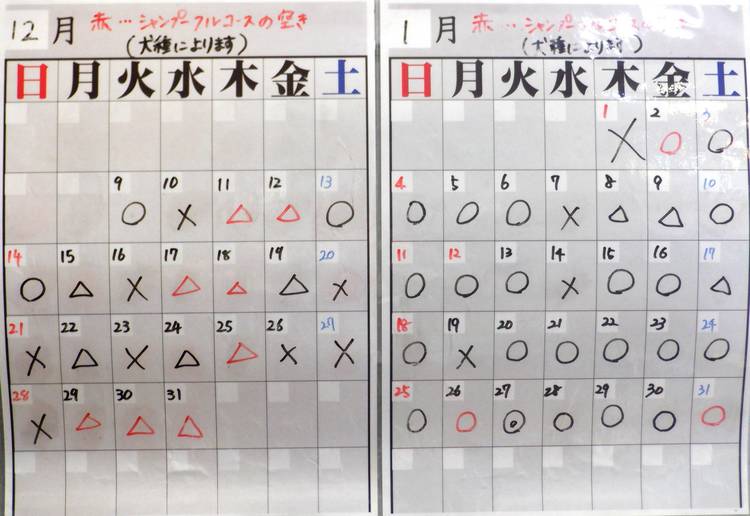 12月 赤…シャンプーフルコースの空き
(犬種によります)
日 月 火 水 木 金 土
9 10 11 12 13
○ × △ △ ○
14 15 16 17 18 19 20
○ △ × △ △ △ ×
21 22 23 24 25 26 27
× △ × △ △ × ×
28 29 30 31
× △ △ △
1月 赤…シャンプー
(犬種によります)
日 月 火 水 木 金 土
1 2 3
× ○ ○
4 5 6 7 8 9 10
○ ○ ○ × △ △ ○
11 12 13 14 15 16 17
○ ○ ○ × ○ ○ △
18 19 20 21 22 23 24
○ × ○ ○ ○ ○ ○
25 26 27 28 29 30 31
○ ○ ◎ ○ ○ ○ ○